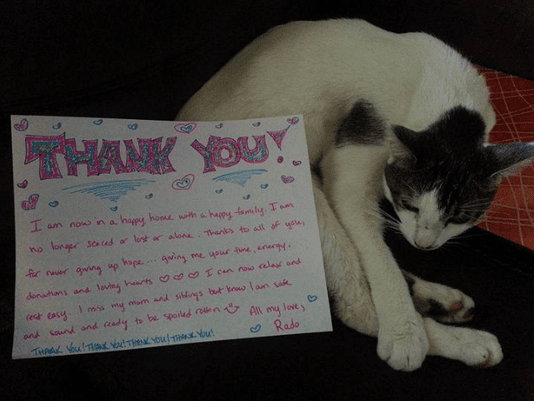 THANK YOU!
I am now in a happy home with a happy family. I am
no longer scared or lost or alone. Thanks to all of you,
for never giving up hope... giving me your time, energy,
donations and loving hearts ♡♡♡ I can now relax and
rest easy. I miss my mom and siblings but know I am safe
and sound and ready to be spoiled rotten All my love,
Rado
THANK YOU! THANK YOU! THANK YOU! THANK YOU!